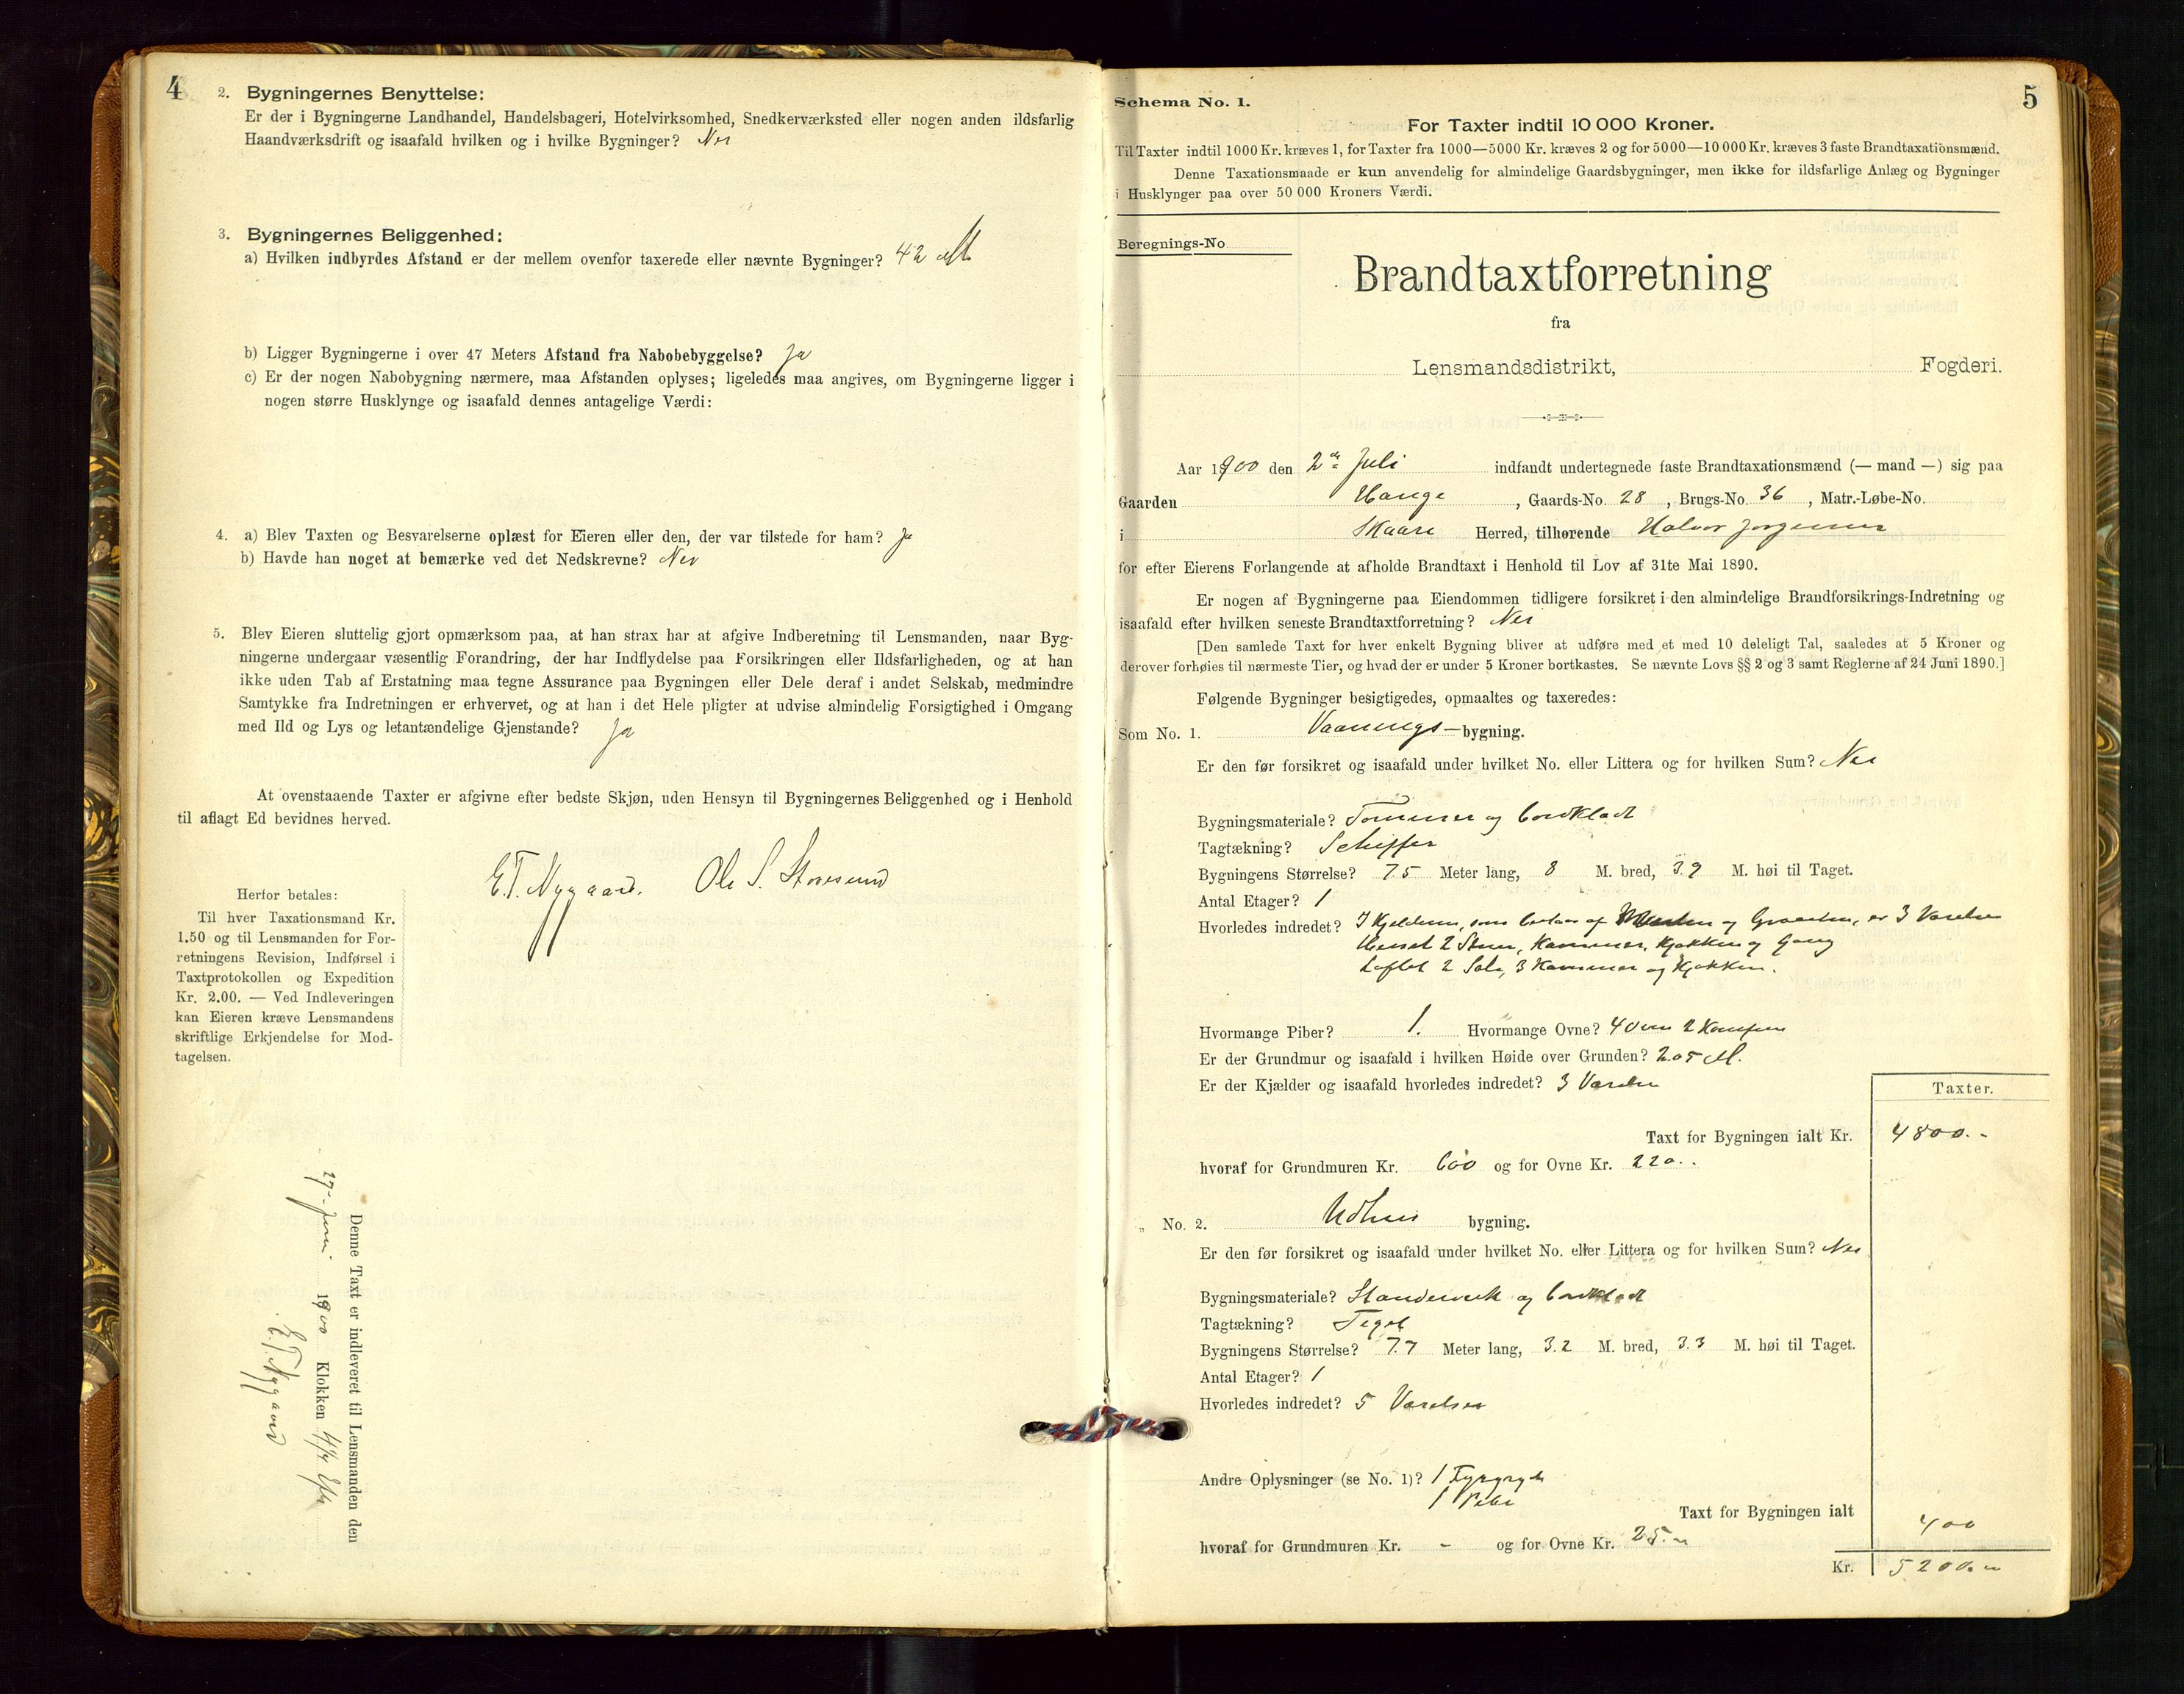 4
2. Bygningernes Benyttelse:
Er der i Bygningerne Landhandel, Handelsbageri, Hotelvirksomhed, Snedkerværksted eller nogen anden ildsfarlig
Haandværksdrift og isaafald hvilken og i hvilke Bygninger? Nei
3. Bygningernes Beliggenhed:
a) Hvilken indbyrdes Afstand er der mellem ovenfor taxerede eller nævnte Bygninger? 42
b) Ligger Bygningerne i over 47 Meters Afstand fra Nabobebyggelse? Ja
c) Er der nogen Nabobygning nærmere, maa Afstanden oplyses; ligeledes maa angives, om Bygningerne ligger i
nogen større Husklynge og isaafald dennes antagelige Værdi:
4. a) Blev Taxten og Besvarelserne oplæst for Eieren eller den, der var tilstede for ham? Ja
b) Havde han noget at bemærke ved det Nedskrevne? Nei
5. Blev Eieren sluttelig gjort opmærksom paa, at han strax har at afgive Indberetning til Lensmanden, naar Byg-
ningerne undergaar væsentlig Forandring, der har Indflydelse paa Forsikringen eller Ildsfarligheden, og at han
ikke uden Tab af Erstatning maa tegne Assurance paa Bygningen eller Dele deraf i andet Selskab, medmindre
Samtykke fra Indretningen er erhvervet, og at han i det Hele pligter at udvise almindelig Forsigtighed i Omgang
med Ild og Lys og letantændelige Gjenstande? Ja
At ovenstaaende Taxter er afgivne efter bedste Skjøn, uden Hensyn til Bygningernes Beliggenhed og i Henhold
til aflagt Ed bevidnes herved.
E.T. Nygaard. Ole S. Storesund
Herfor betales:
Til hver Taxationsmand Kr.
1.50 og til Lensmanden for For-
retningens Revision, Indførsel i
Taxtprotokollen og Expedition
Kr. 2.00. — Ved Indleveringen
kan Eieren kræve Lensmandens
skriftlige Erkjendelse for Mod-
tagelsen.
Denne Taxt er indleveret til Lensmanden den
27- Juni 1900 Klokken 4 1/4 Eft
E.T. Nygaard
5
Schema No. 1.
For Taxter indtil 10 000 Kroner.
Til Taxter indtil 1000 Kr. kræves 1, for Taxter fra 1000—5000 Kr. kræves 2 og for 5000—10 000 Kr. kræves 3 faste Brandtaxationsmænd.
Denne Taxationsmaade er kun anvendelig for almindelige Gaardsbygninger, men ikke for ildsfarlige Anlæg og Bygninger
i Husklynger paa over 50 000 Kroners Værdi.
Beregnings-No
Brandtaxtforretning
fra
Lensmandsdistrikt, Fogderi.
Aar 1900 den 2de Juli indfandt undertegnede faste Brandtaxationsmænd (— mand —) sig paa
Gaarden Hauge, Gaards-No. 28, Brugs-No. 36, Matr.-Løbe-No.
i Skaare Herred, tilhørende Halvor Jorgensen
for efter Eierens Forlangende at afholde Brandtaxt i Henhold til Lov af 31te Mai 1890.
Er nogen af Bygningerne paa Eiendommen tidligere forsikret i den almindelige Brandforsikrings-Indretning og
isaafald efter hvilken seneste Brandtaxtforretning? Nei
[Den samlede Taxt for hver enkelt Bygning bliver at udføre med et med 10 deleligt Tal, saaledes at 5 Kroner og
derover forhøies til nærmeste Tier, og hvad der er under 5 Kroner bortkastes. Se nævnte Lovs §§ 2 og 3 samt Reglerne af 24 Juni 1890.]
Følgende Bygninger besigtigedes, opmaaltes og taxeredes:
Som No. 1. Vaanings—bygning.
Er den før forsikret og isaafald under hvilket No. eller Littera og for hvilken Sum? Nei
Bygningsmateriale? Tømmer og bordklædt
Tagtækning? Schiffer
Bygningens Størrelse? 7.5 Meter lang, 8 M. bred, 3.9 M. høi til Taget.
Antal Etager? 1
Hvorledes indredet? I Kjelderen, som bestaar af og Graasten, er 3 Værelser
Huset 2 Stuer, Kammer, Kjøkken og Gang
Loftet 2 Sale, 3 Kammer og Kjøkken.
Hvormange Piber? 1. Hvormange Ovne? 4 Ovne 2 Komfur
Er der Grundmur og isaafald i hvilken Høide over Grunden? 2.05 M.
Er der Kjælder og isaafald hvorledes indredet? 3 Værelser
Taxter.
Taxt for Bygningen ialt Kr. 4800.-
hvoraf for Grundmuren Kr. 600 og for Ovne Kr. 220.-
„ No. 2. Udhus bygning.
Er den før forsikret og isaafald under hvilket No. eller Littera og for hvilken Sum? Nei
Bygningsmateriale? Standerverk og bordklædt
Tagtækning? Tegel
Bygningens Størrelse? 7.7 Meter lang, 3.2 M. bred, 3.3 M. høi til Taget.
Antal Etager? 1
Hvorledes indredet? 5 Værelser
Andre Oplysninger (se No. 1)? 1 Fyrgryde
1 Pibe
Taxt for Bygningen ialt 400
hvoraf for Grundmuren Kr. - og for Ovne Kr. 25.-
Kr. 5200.-